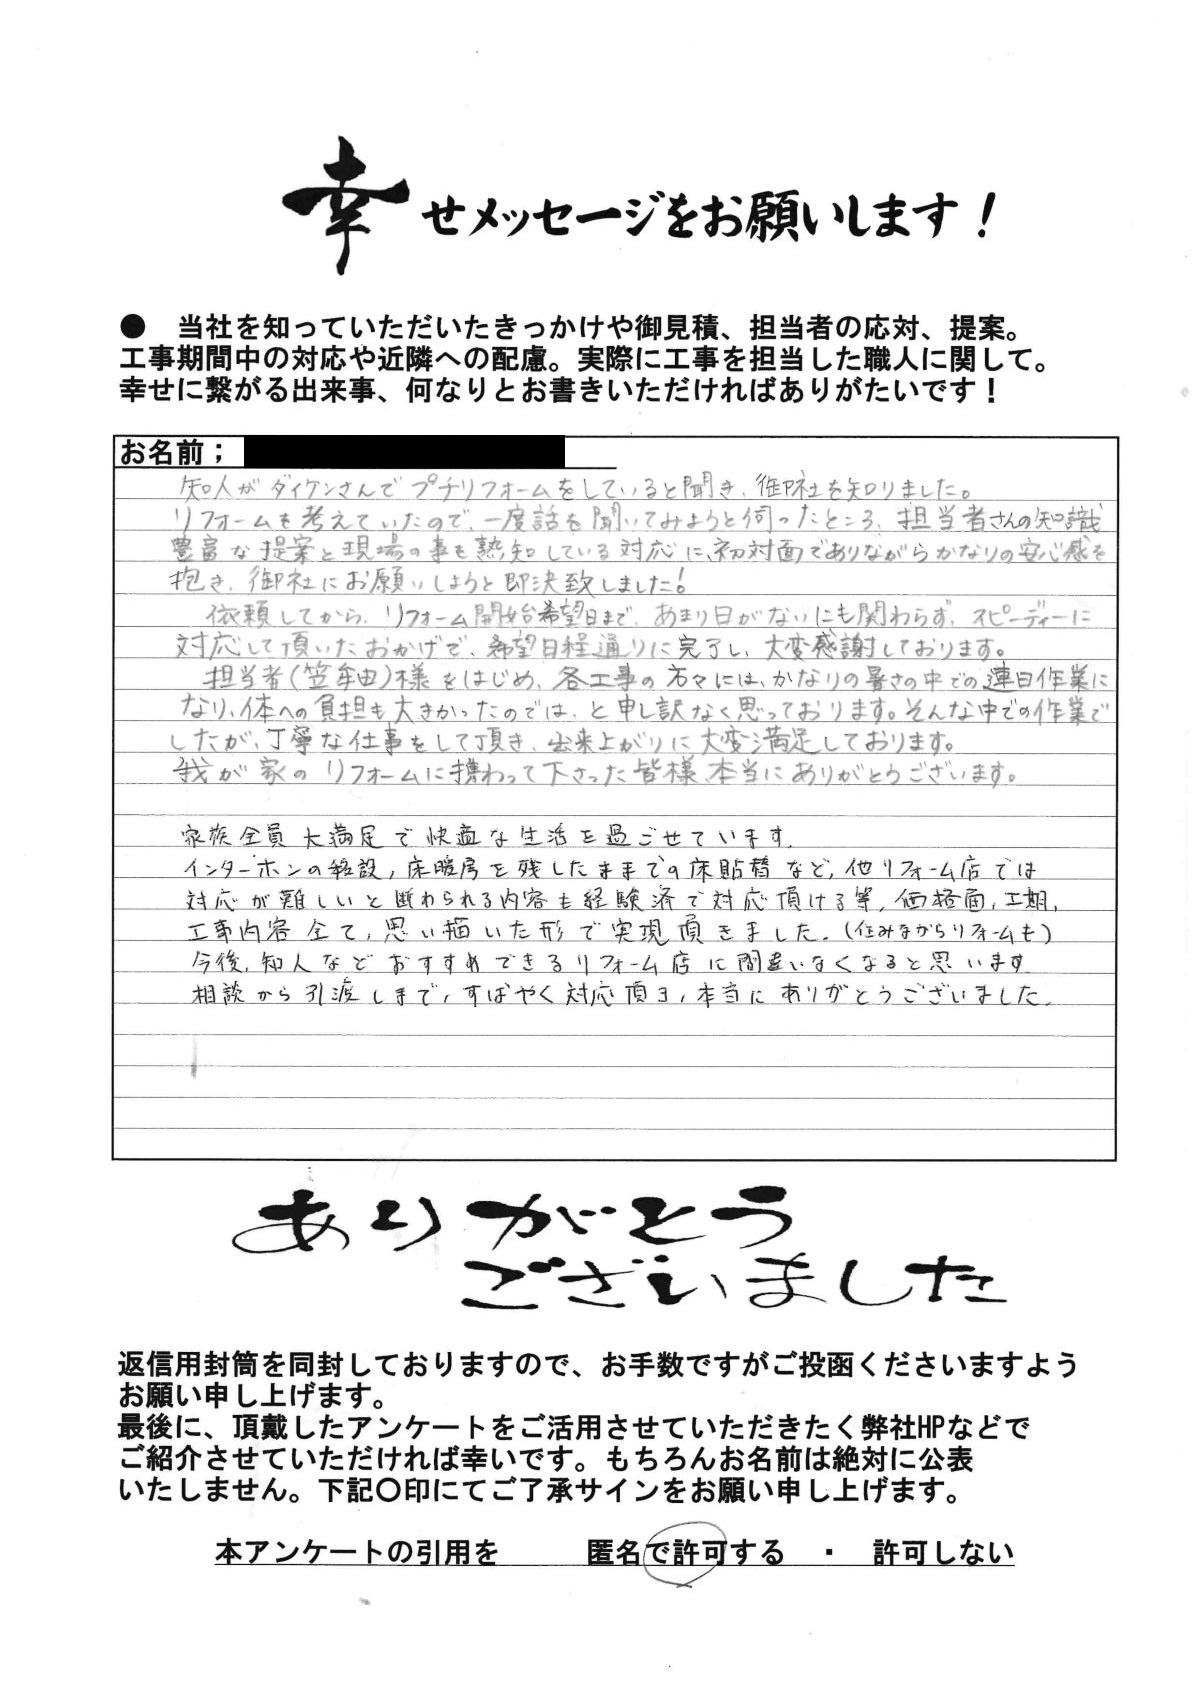 幸せメッセージをお願いします！
● 当社を知っていただいたきっかけや御見積、担当者の応対、提案。
工事期間中の対応や近隣への配慮。実際に工事を担当した職人に関して。
幸せに繋がる出来事、何なりとお書きいただければありがたいです！
お名前；
知人がダイケンさんでプチリフォームをしていると聞き、御社を知りました。
リフォームを考えていたので、一度話を聞いてみようと伺ったところ、担当者さんの知識
豊富な提案と現場の事を熟知している対応に、初対面でありながらかなりの安心感を
抱き、御社にお願いしようと即決致しました！
依頼してから、リフォーム開始希望日まで、あまり日がないにも関わらず、スピーディーに
対応して頂いたおかげで、希望日程通りに完了し、大変感謝しております。
担当者(笠牟田)様をはじめ、各工事の方々には、かなりの暑さの中での連日作業に
なり、体への負担も大きかったのでは、と申し訳なく思っております。そんな中での作業で
したが、丁寧な仕事をして頂き、出来上がりに大変満足しております。
我が家のリフォームに携わって下さった皆様、本当にありがとうございます。
家族全員大満足で快適な生活を過ごせています。
インターホンの移設, 床暖房を残したままでの床貼替など, 他リフォーム店では
対応が難しいと断わられる内容も経験済で対応頂ける等, 価格面, 工期,
工事内容全て, 思い描いた形で実現頂きました。(住みながらリフォームも)
今後, 知人などおすすめできるリフォーム店に間違いなくなると思います
相談から引渡しまで, すばやく対応頂き, 本当にありがとうございました。
ありがとう
ございました
返信用封筒を同封しておりますので、お手数ですがご投函くださいますよう
お願い申し上げます。
最後に、頂戴したアンケートをご活用させていただきたく弊社HPなどで
ご紹介させていただければ幸いです。もちろんお名前は絶対に公表
いたしません。下記〇印にてご了承サインをお願い申し上げます。
本アンケートの引用を 匿名で許可する ・ 許可しない